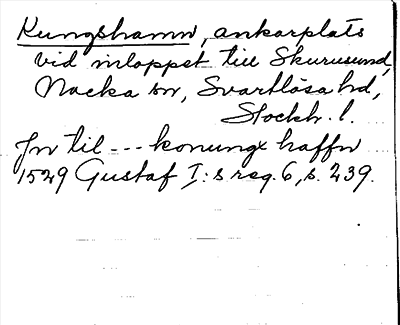 Kungshamn, ankarplats
vid inloppet till Skurusund,
Nacka sn, Svartlösa hd,
Stockh. l.
Jn til --- konungx haffn
1529 Gustaf I:s reg. 6, s. 239.